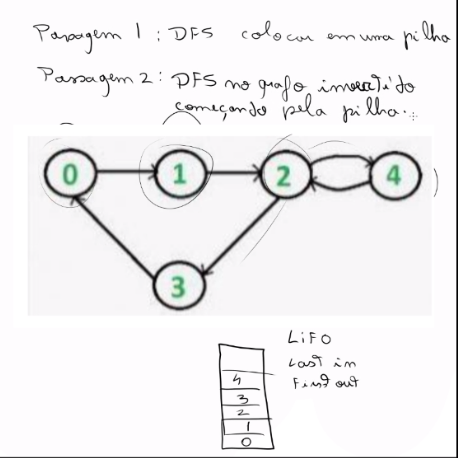 Passagem 1: DFS colocar em uma pilha
Passagem 2: DFS no grafo invertido
começando pela pilha.
0
1
2
4
3
LiFO
Last in
First out
4
3
2
1
0